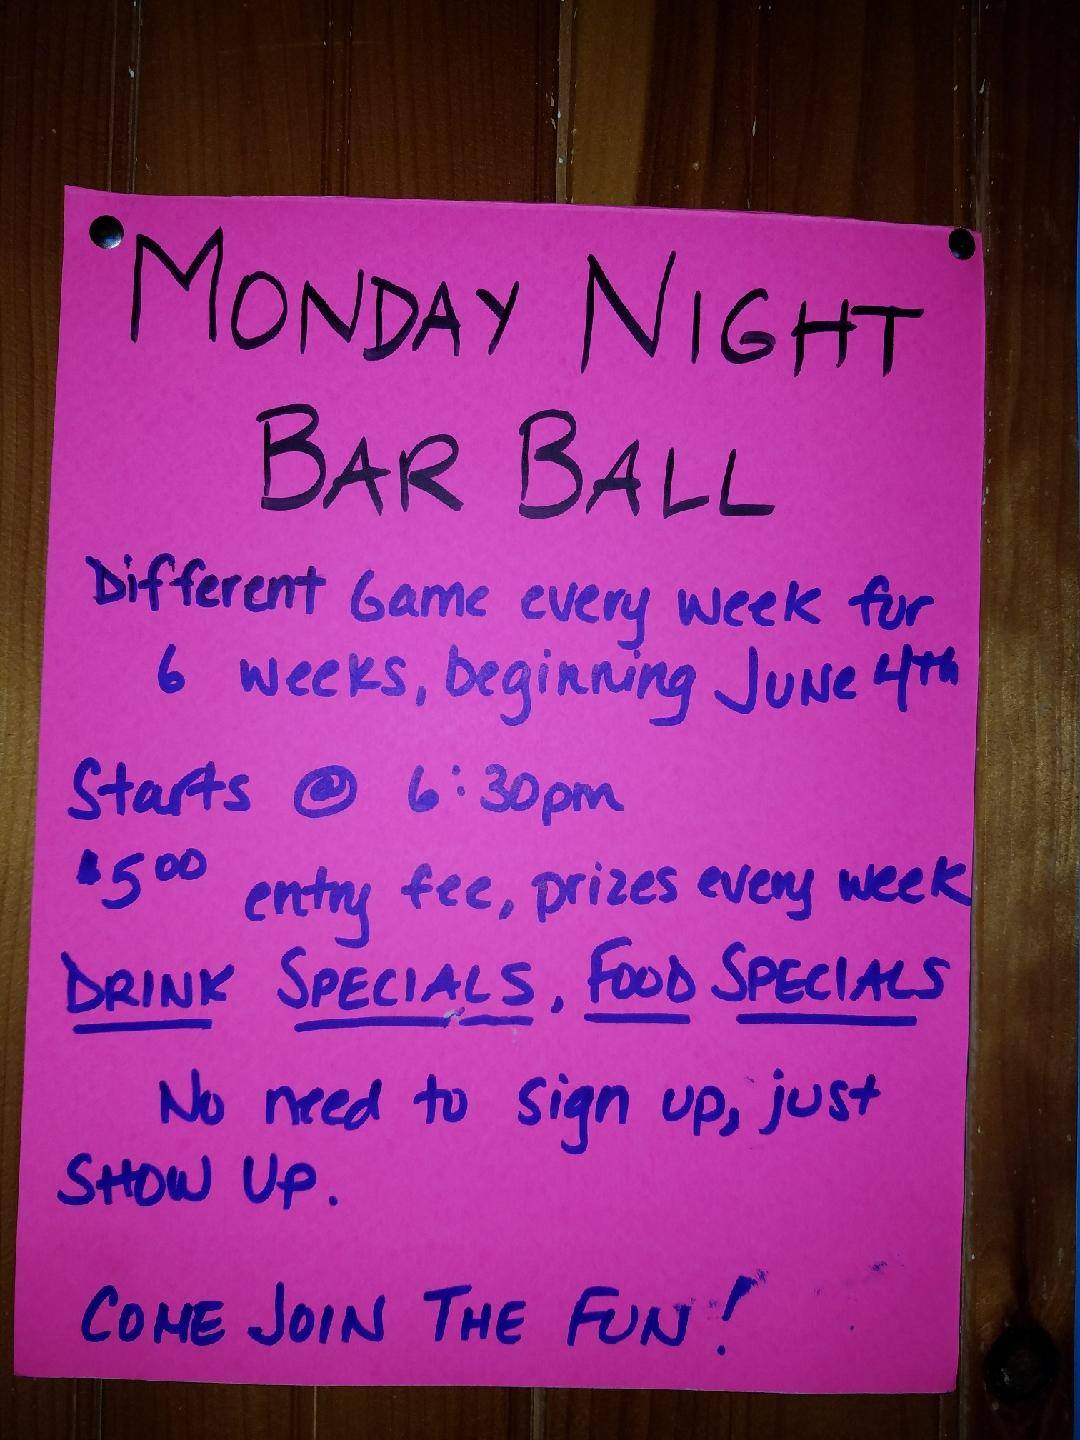 MONDAY NIGHT
BAR BALL
Different Game every week for
6 weeks, beginning JUNe 4TH
Starts @ 6:30pm
$5.00 entry fee, prizes every week
DRINK SPECIALS, FOOD SPECIALS
No need to sign up, just
SHOW UP.
COME JOIN THE FUN!